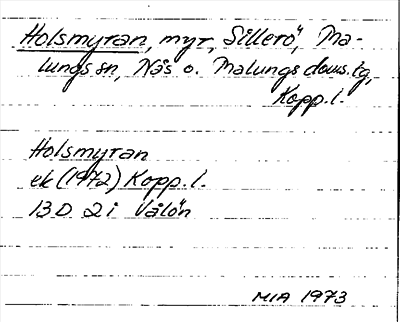 Holsmyran, myr, Sillerö, Ma-
lungs sn, Nås o. Malungs doms.tg,
Kopp.l.
Holsmyran
ek (1972) Kopp.l.
13D 2i Vålön
MIA 1973